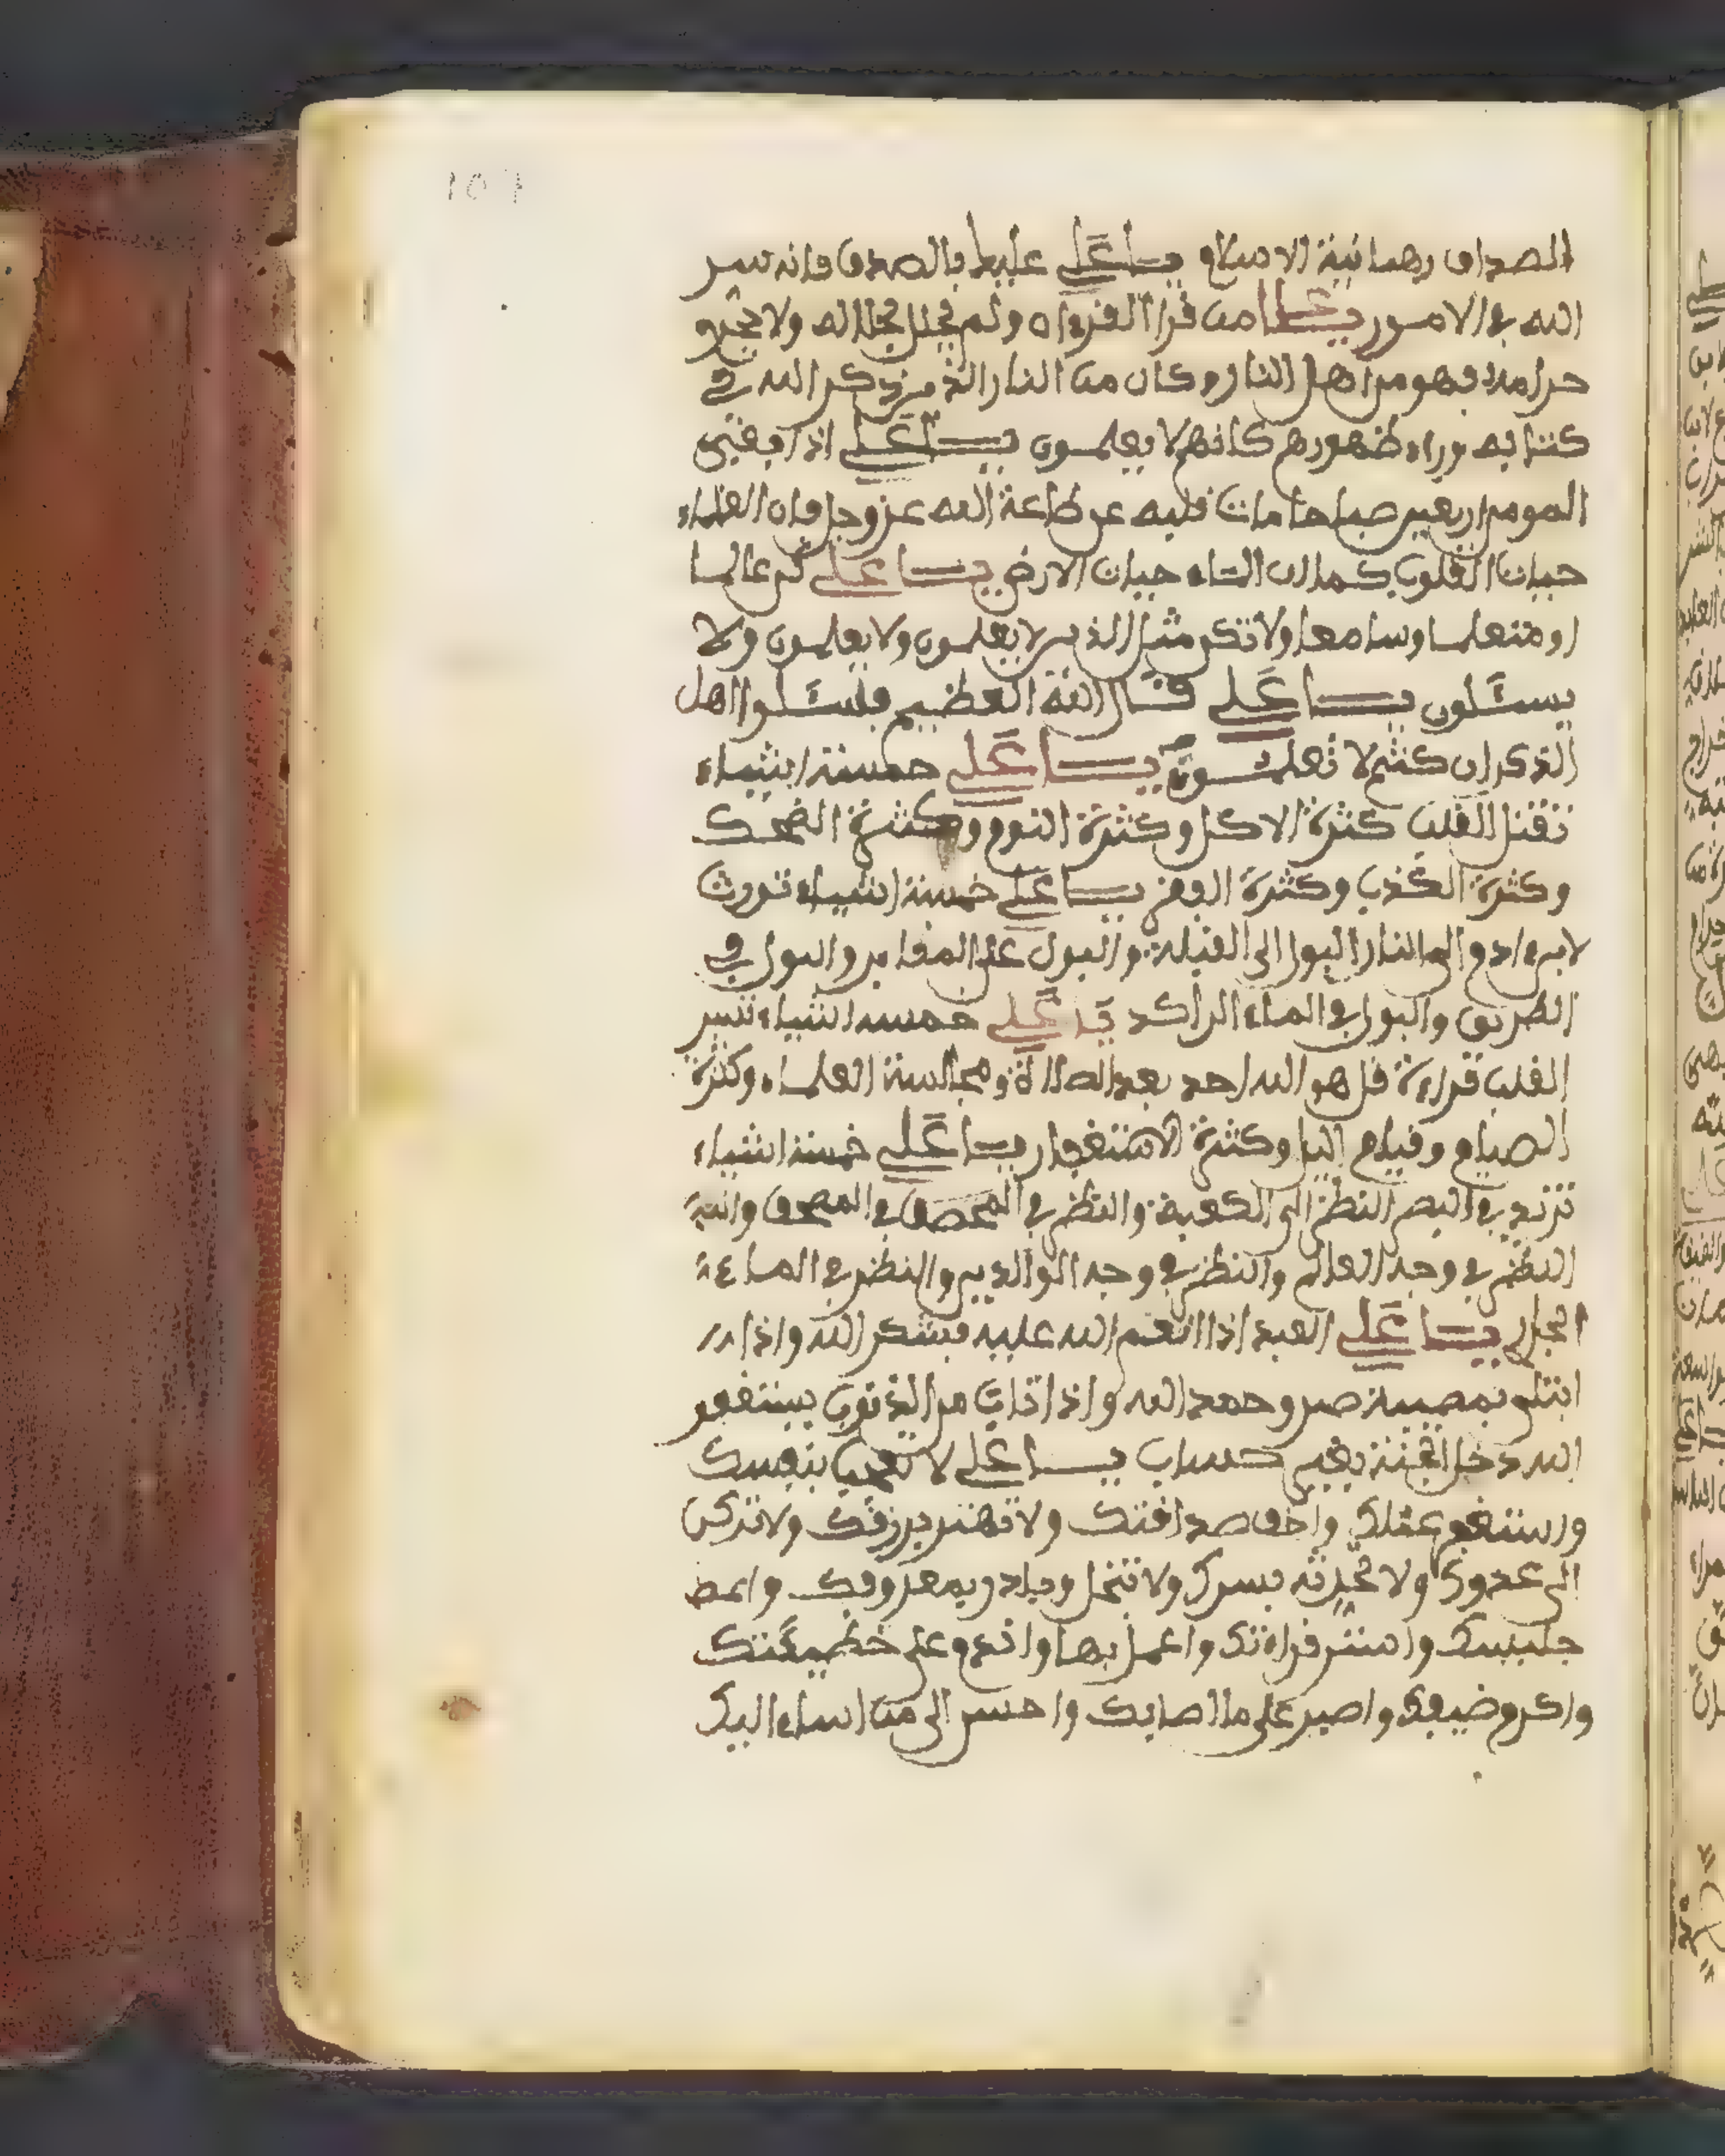 الصداق رهبانية الاسلام يا علي عليك بالصدق فانه سر
الله في الامور يا علي من قرا القرءان ولم يحلل حلاله ولا يحرم
حرامه فهو من اهل النار وكان من النار الذين ذكر الله في
كتابه وراء ظهورهم كانهم لا يعلمون يا علي اذا بقي
المومن اربعين صباحا مات قلبه عن طاعة الله عز وجل فان العلماء
حيات القلوب كما ان الماء حيات الارض يا علي كن عالما
او متعلما وسامعا ولا تكن مثل الذين لا يعلمون ولا يعلمون ولا
يسئلون يا علي قال الله العظيم فاسئلوا اهل
الذكر ان كنتم لا تعلمون يا علي خمسة اشياء
تقتل القلب كثرة الاكل وكثرة النوم وكثرة الضحك
وكثرة الكذب وكثرة يا علي خمسة اشياء تورث
النار البول الى القبلة والبول على المقابر والبول في
الطريق والبول في الماء الراكد يا علي خمسة اشياء تسر
القلب قراءة قل هو الله احد بعد الصلاة ومجالسة العلماء وكثرة
الصيام وقيام اليل وكثرة الاستغفار يا علي خمسة اشياء
تزيد في البصر النظر الى الكعبة والنظر في المصحف
النظر في وجه العالم والنظر في وجه الوالدين والنظر في الماء
الجار يا علي العبد اذا انعم الله عليه فيشكر الله واذا
ابتلي بمصيبة صبر وحمد الله واذا تاب من الذنوب يستغفر
الله دخل الجنة بغير حساب يا علي لا تعجب بنفسك
عقلك واخف صدقتك ولا تهتم برزقك ولا تركن
الى عدوك ولا تحدثه بسرك ولا تبخل وجاد بمعروفك
جليسك واستر قراءتك واعمل بها واندم على خطيئتك
واكرم ضيفك واصبر على ما اصابك واحسن الى من اساء اليك